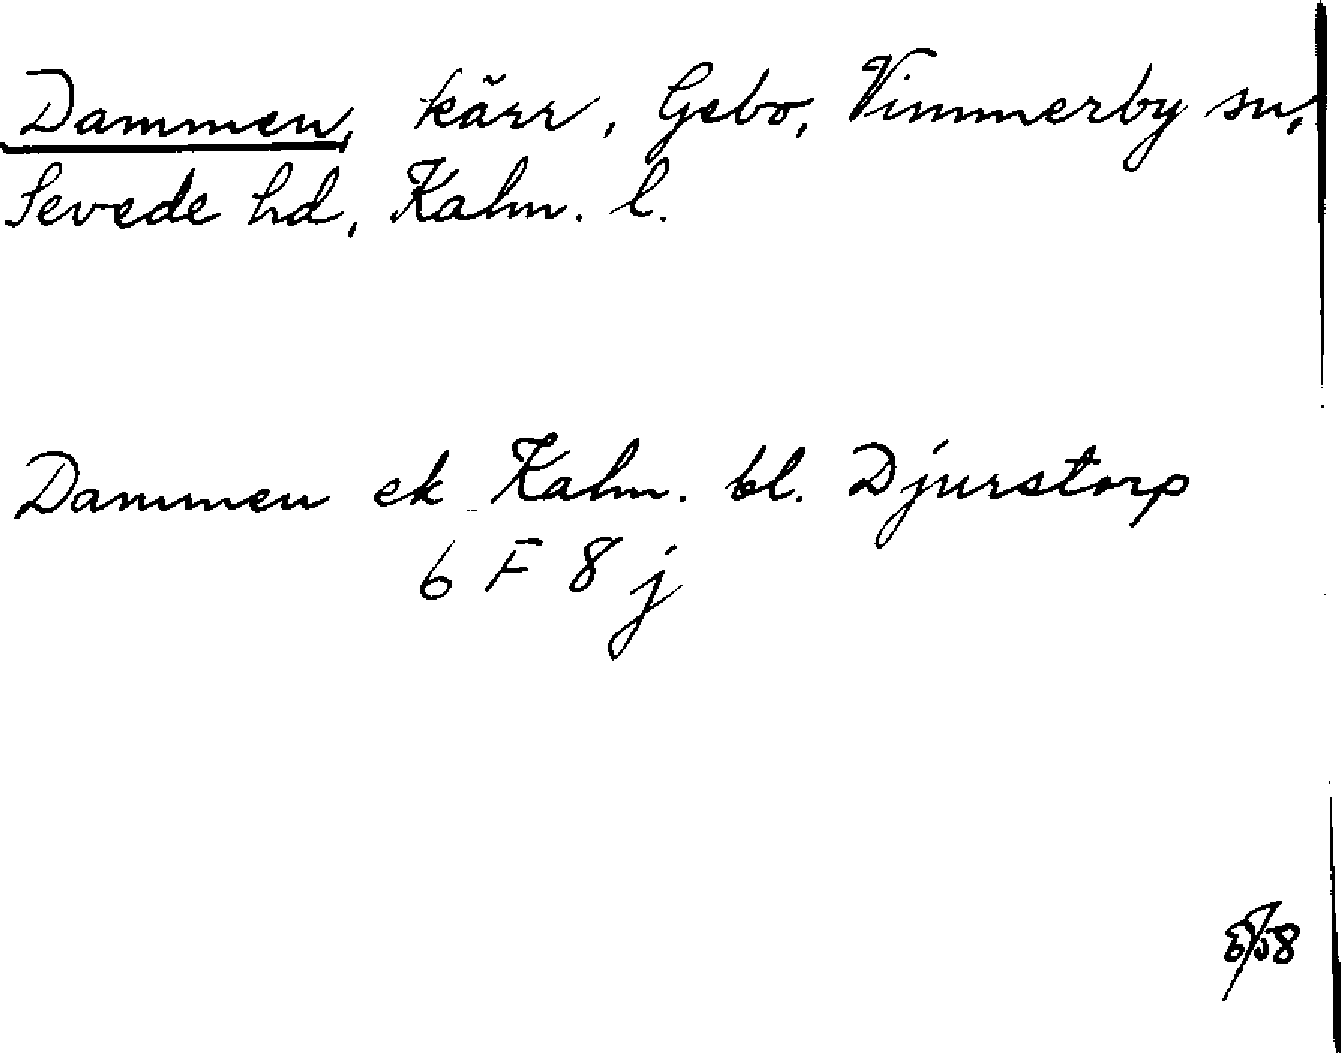 Dammen, kärr, Gebo, Vimmerby sn,
Sevede hd, Kalm. l.
Dammen ek Kalm. bl. Djurstorp
6 F 8 j